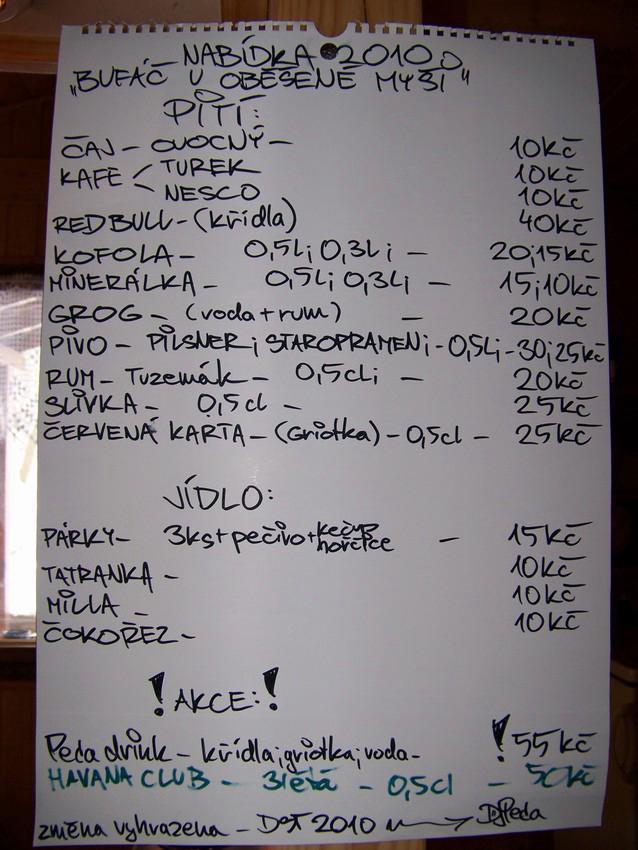 NABÍDKA 2010
„BUFÁČ U OBĚŠENÉ MYŠI"
PITÍ:
ČAJ - OVOCNÝ - 10Kč
KAFE < TUREK 10Kč
NESCO 10Kč
RED BULL - (křídla) 40Kč
KOFOLA - 0,5L; 0,3L; - 20;15Kč
MINERÁLKA - 0,5L; 0,3L; - 15;10Kč
GROG - (voda + rum) - 20Kč
PIVO - PILSNER; STAROPRAMEN; - 0,5L; - 30;25Kč
RUM - Tuzemák - 0,5cl; - 20Kč
SLIVKA - 0,5cl - 25Kč
ČERVENÁ KARTA - (Griotka) - 0,5cl - 25Kč
JÍDLO:
PÁRKY - 3ks + pečivo + kečup hořčice - 15Kč
TATRANKA - 10Kč
MILLA - 10Kč
ČOKOŘEZ - 10Kč
! AKCE: !
Peča drink - křídla; griotka; voda - ! 55Kč
HAVANA CLUB - 3letá - 0,5cl - 50Kč
změna vyhrazena - 2010